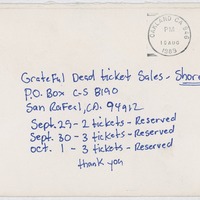 OAKLAND CA 946
PM
10 AUG
1989
Grateful Dead ticket Sales - Shore
P.O. Box C-S 8190
San Rafeal, CA. 94912
Sept. 29 - 2 tickets - Reserved
Sept. 30 - 3 tickets - Reserved
oct. 1 - 3 tickets - Reserved
thank you